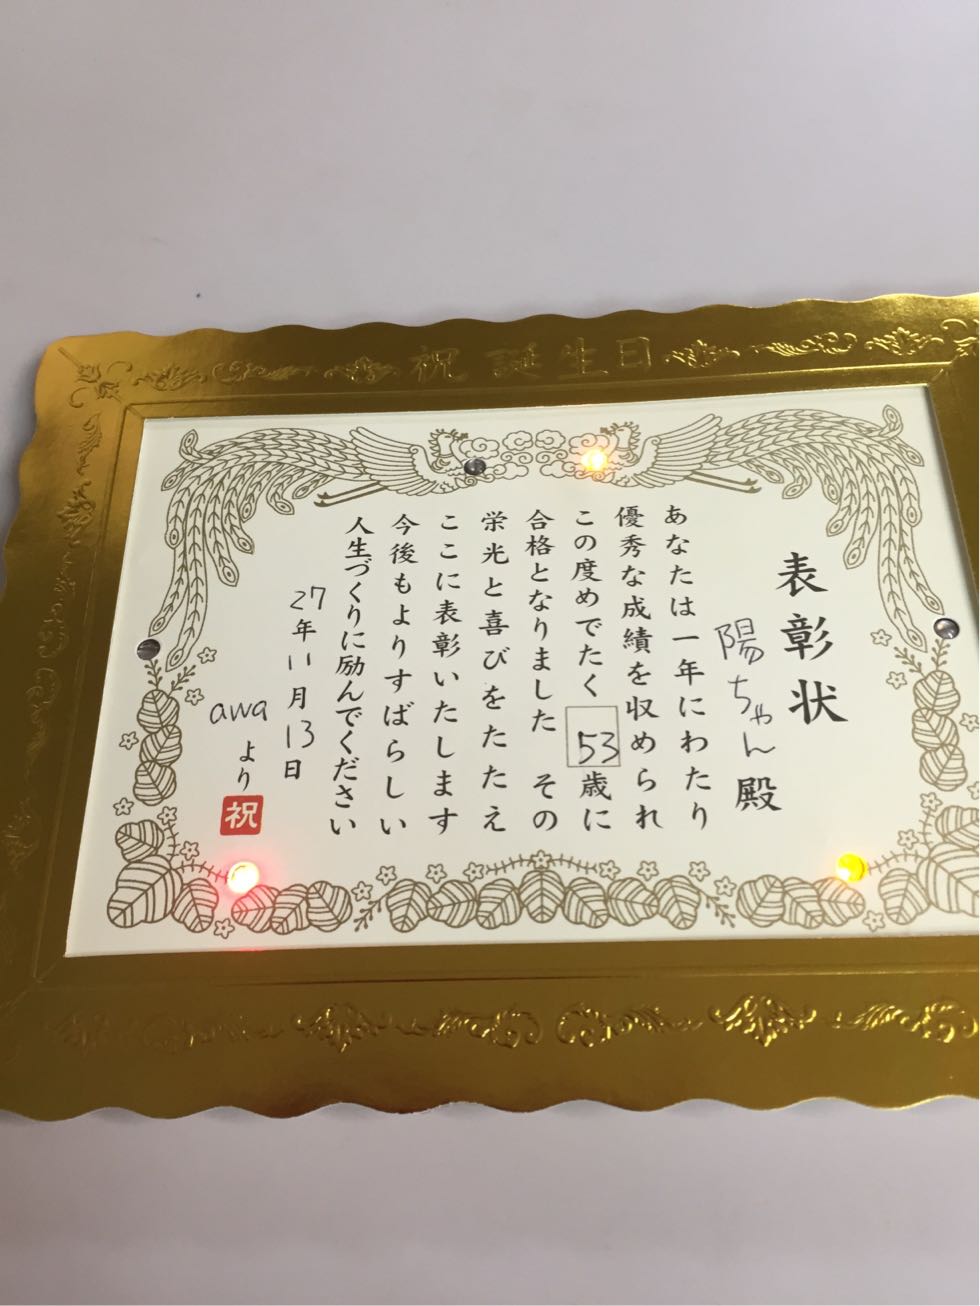 祝 誕生日
表彰状
陽ちゃん殿
あなたは一年にわたり
優秀な成績を収められ
この度めでたく53歳に
合格となりました その
栄光と喜びをたたえ
ここに表彰いたします
今後もよりすばらしい
人生づくりに励んでください
27年11月13日
awaより
祝